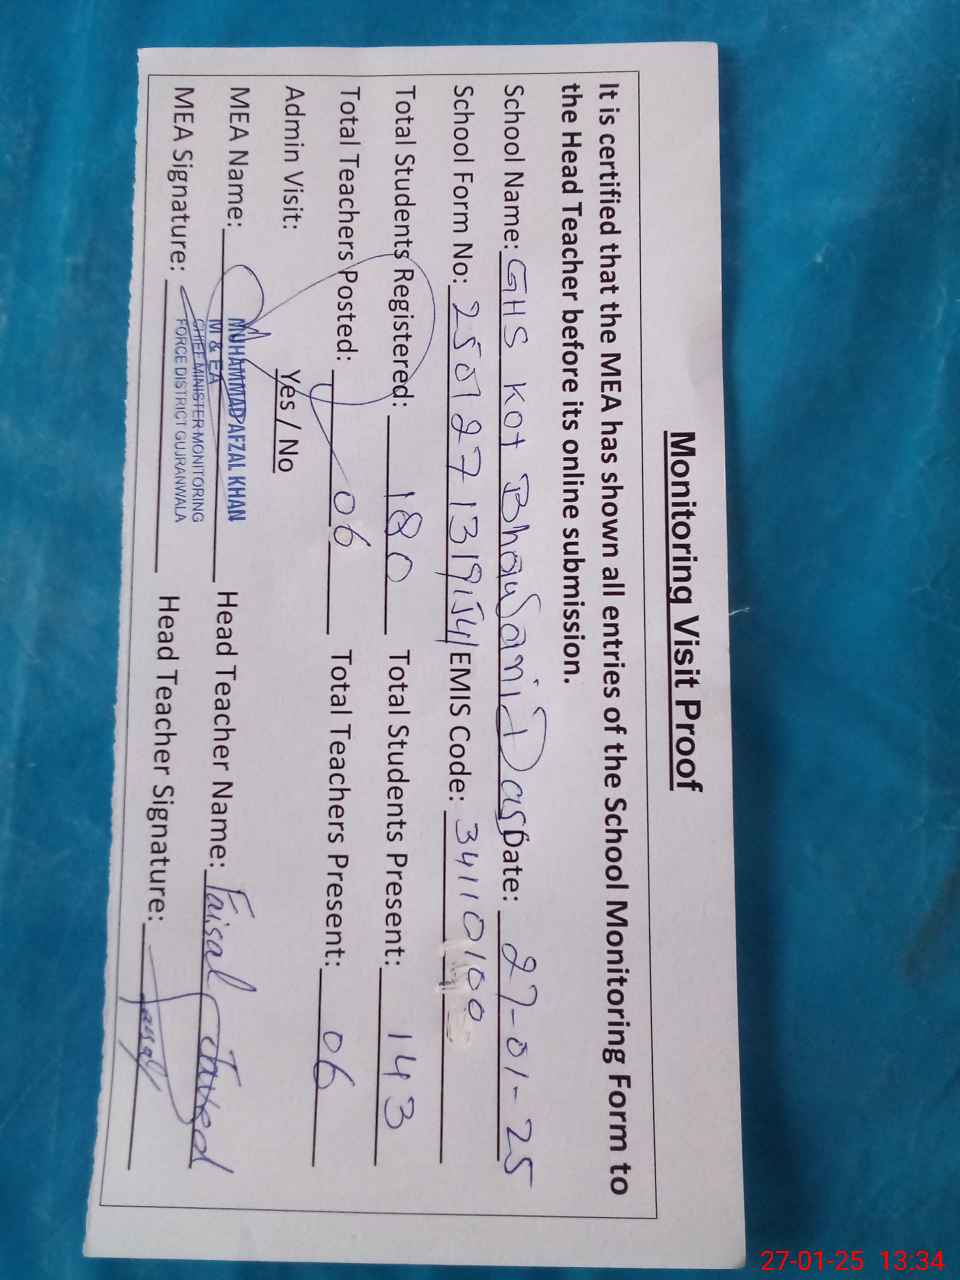 Monitoring Visit Proof
It is certified that the MEA has shown all entries of the School Monitoring Form to
the Head Teacher before its online submission.
School Name: GHS Kot Bhawani Das Date: 27-01-25
School Form No: EMIS Code: 34110100
Total Students Registered: 180 Total Students Present: 143
Total Teachers Posted: 06 Total Teachers Present: 06
Admin Visit: Yes / No
MEA Name: MUHAMMAD AFZAL KHAN Head Teacher Name: Faisal Javed
M & EA
MEA Signature: CHIEF MINISTER MONITORING Head Teacher Signature: Faisal
FORCE DISTRICT GUJRANWALA
27-01-25 13:34